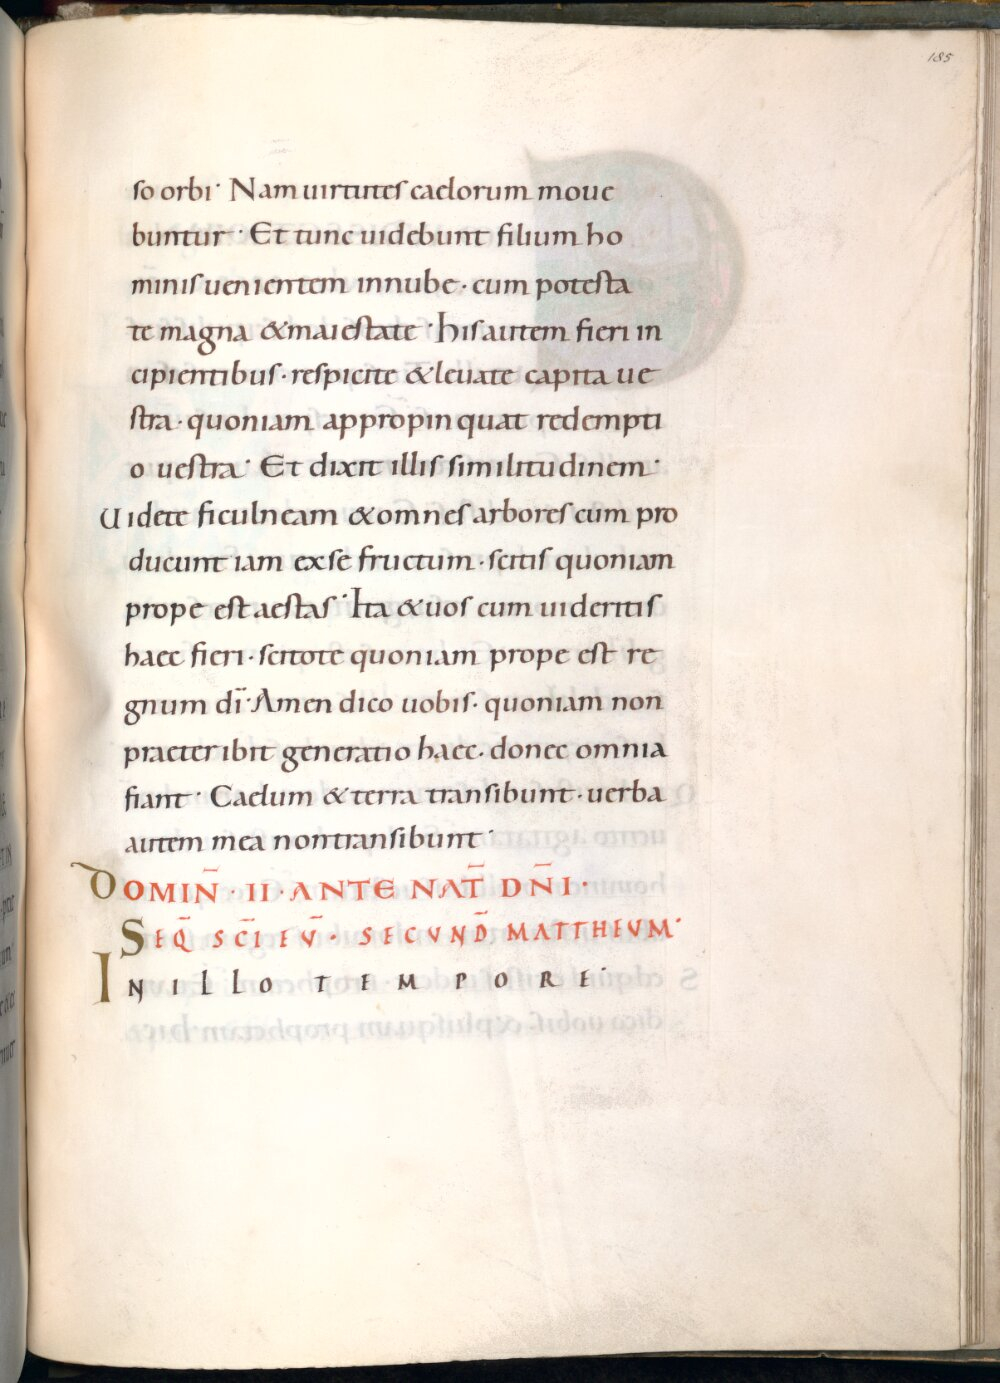 185
so orbi· Nam uirtutes caelorum moue
buntur· Et tunc uidebunt filium ho
minis uenientem in nube· cum potesta
te magna & maiestate· his autem fieri in
cipientibus· respicite & leuate capita ue
stra· quoniam appropinquat redempti
o uestra· Et dixit illis similitudinem·
Uidete ficulneam & omnes arbores cum pro
ducunt iam ex se fructum· scitis quoniam
prope est aestas· Ita & uos cum uideritis
haec fieri· scitote quoniam prope est re
gnum dī· Amen dico uobis· quoniam non
praeteribit generatio haec· donec omnia
fiant· Caelum & terra transibunt· uerba
autem mea non transibunt·
DOMIN̄· II· ANTE NAT̄ DN̄I·
SEQ̄ SC̄I EV̄· SECVND̄ MATTHEVM·
IN ILLO TEMPORE·